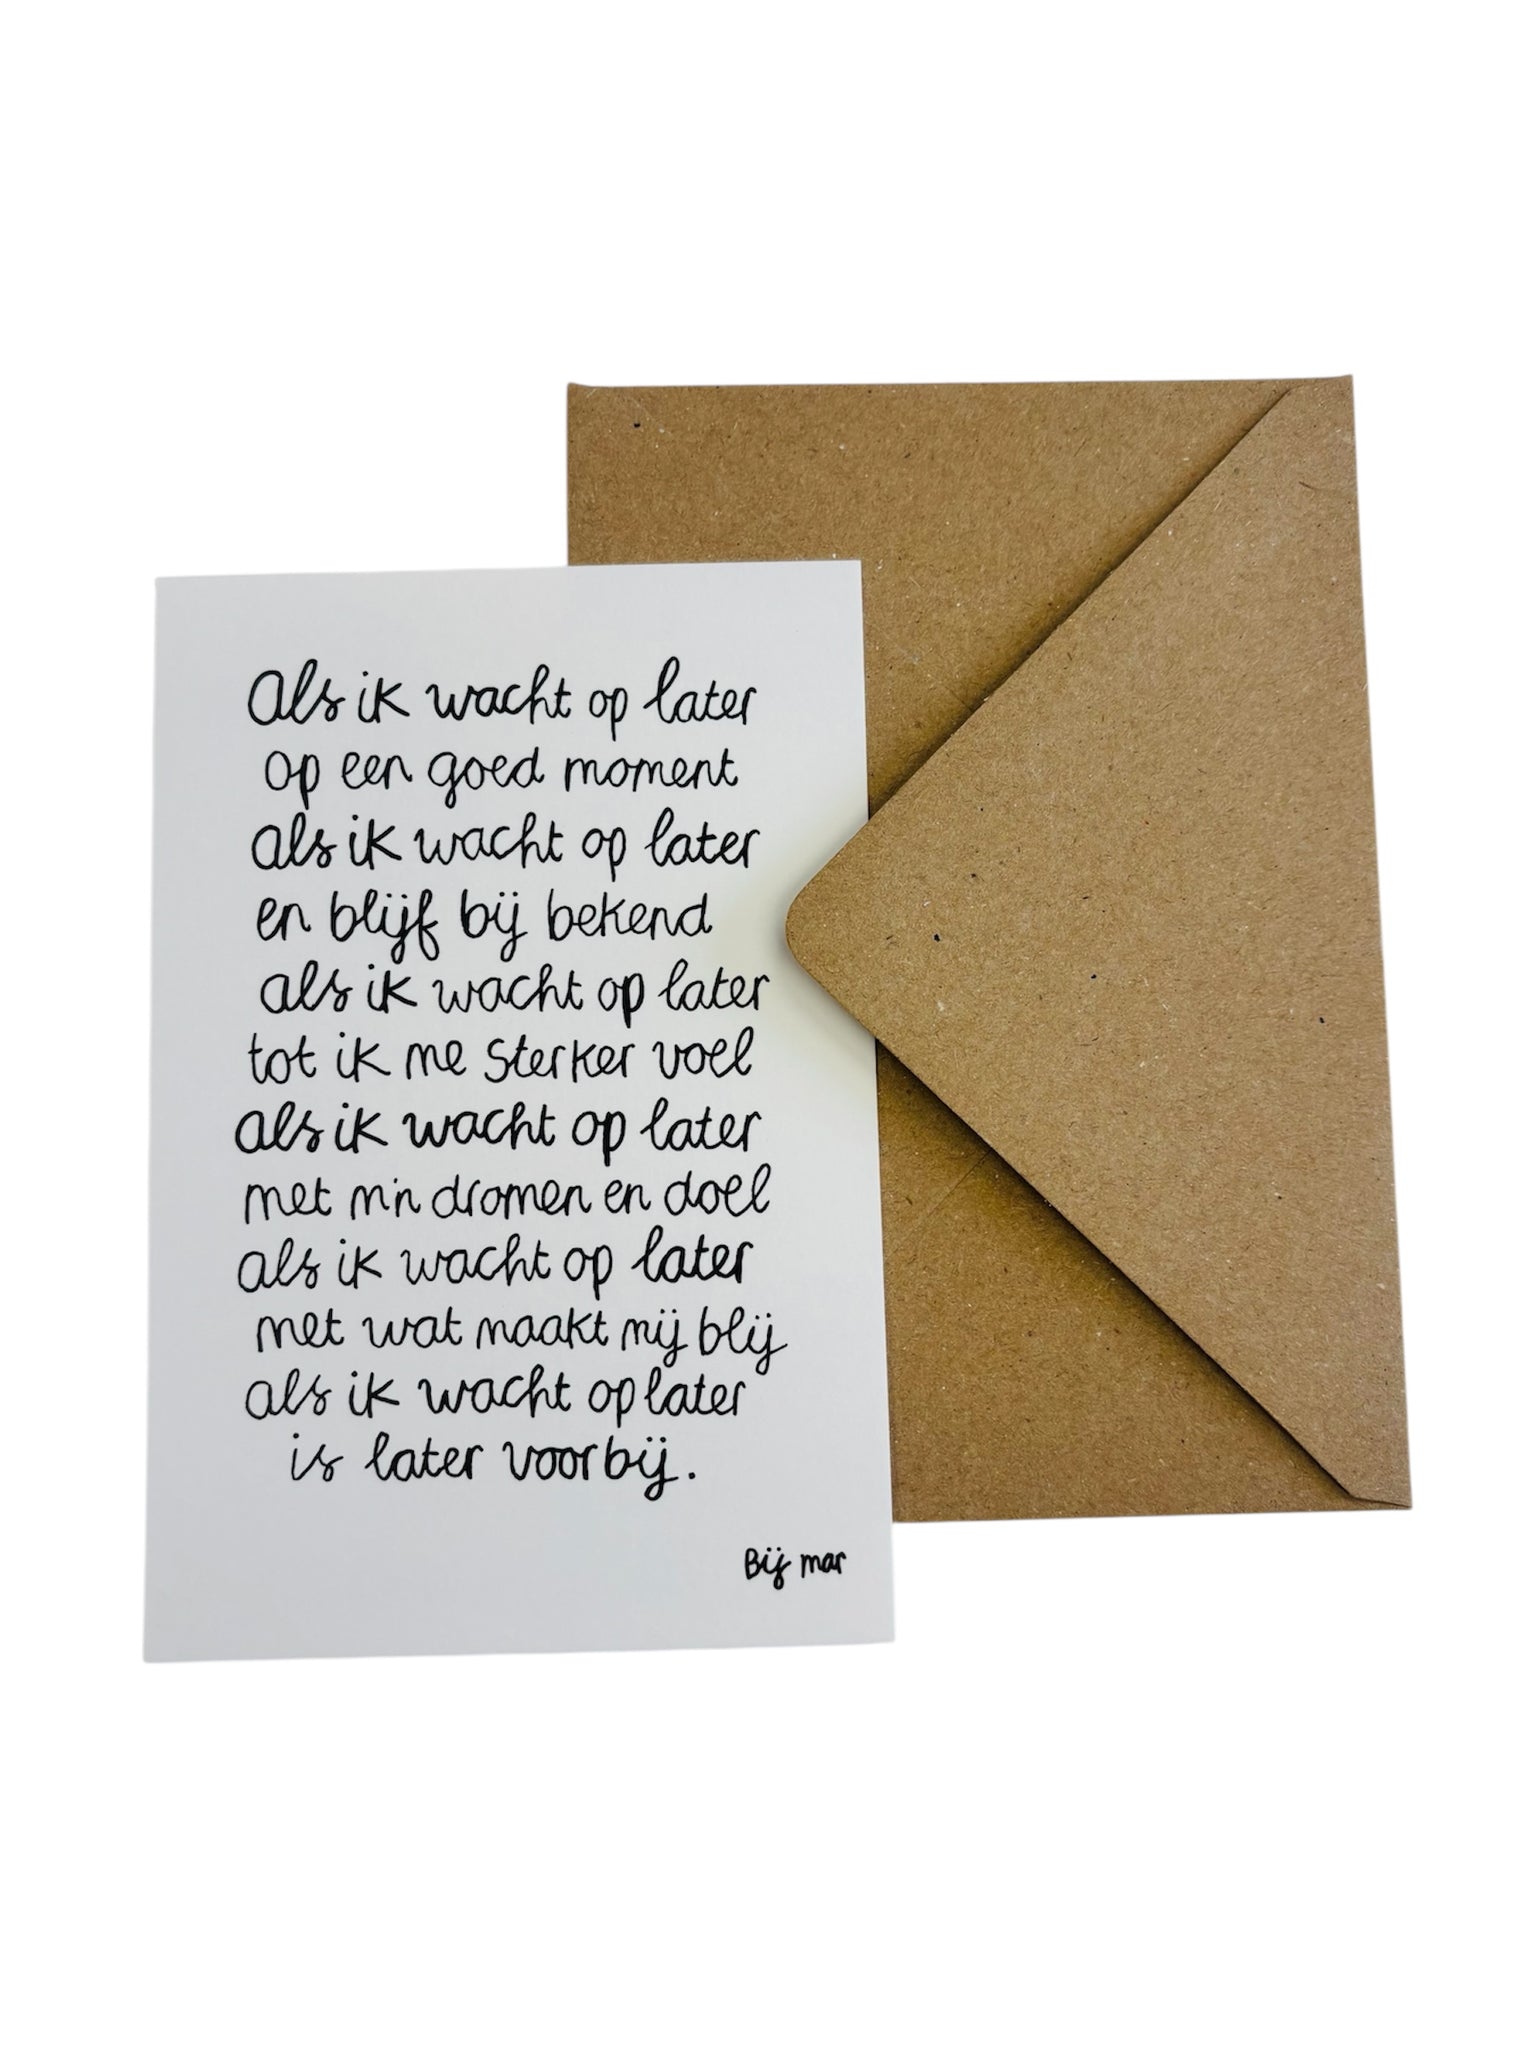 Als ik wacht op later
op een goed moment
als ik wacht op later
en blijf bij bekend
als ik wacht op later
tot ik me sterker voel
als ik wacht op later
met m'n dromen en doel
als ik wacht op later
met wat maakt mij blij
als ik wacht op later
is later voorbij.
Bij mar